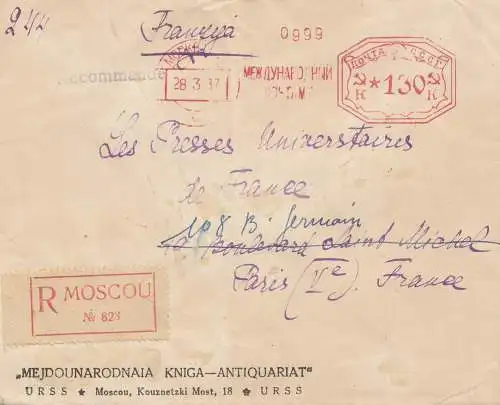 244
Francija
0999
МОСКВА
28·3·37
МЕЖДУНАРОДНЫЙ
ПОЧТА СССР
К *130 К
Recommandé
Les Presses Universitaires
de France
108 B. Germain
Boulevard Saint Michel
Paris (Ve) France
R MOSCOU
№ 823
„MEJDOUNARODNAIA KNIGA—ANTIQUARIAT“
URSS ★ Moscou, Kouznetzki Most, 18 ✿ URSS